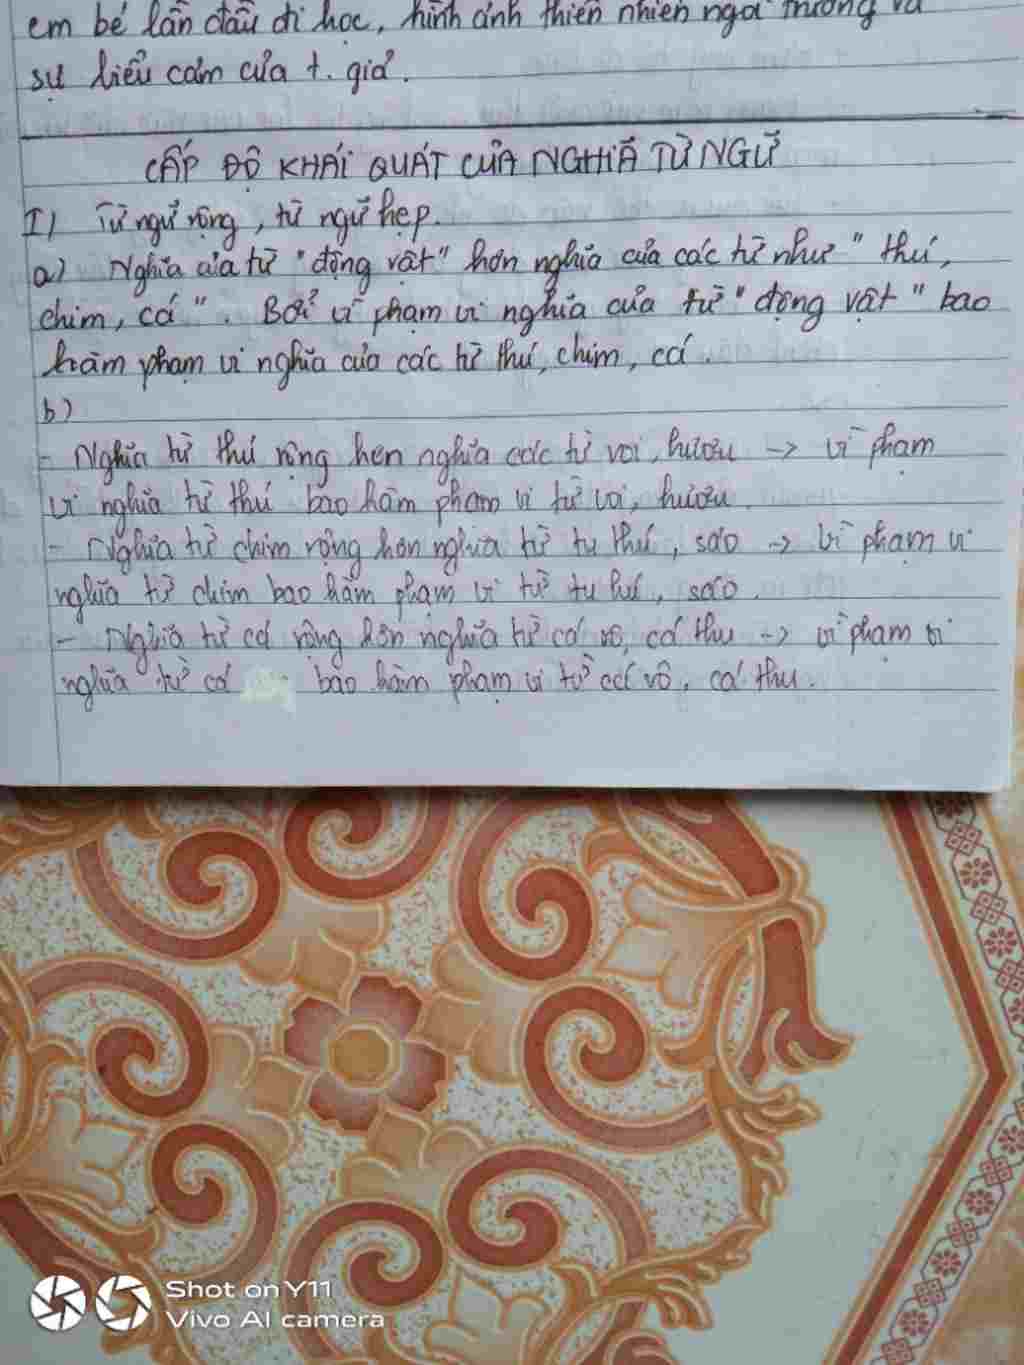 em bé lần đầu đi học, hình ảnh thiên nhiên ngôi trường và
sự biểu cảm của t. giả.
CẤP ĐỘ KHÁI QUÁT CỦA NGHĨA TỪ NGỮ
I) Từ ngữ rộng, từ ngữ hẹp.
a) Nghĩa của từ "động vật" hơn nghĩa của các từ như "thú,
chim, cá". Bởi vì phạm vi nghĩa của từ "động vật" bao
hàm phạm vi nghĩa của các từ thú, chim, cá.
b)
- Nghĩa từ thú rộng hơn nghĩa các từ voi, hươu -> vì phạm
vi nghĩa từ thú bao hàm phạm vi từ voi, hươu.
- Nghĩa từ chim rộng hơn nghĩa từ tu thú, sáo -> vì phạm vi
nghĩa từ chim bao hàm phạm vi từ tu hú, sáo.
- Nghĩa từ cá rộng hơn nghĩa từ cá rô, cá thu -> vì phạm vi
nghĩa từ cá bao hàm phạm vi từ cá rô, cá thu.
Shot on Y11
Vivo AI camera